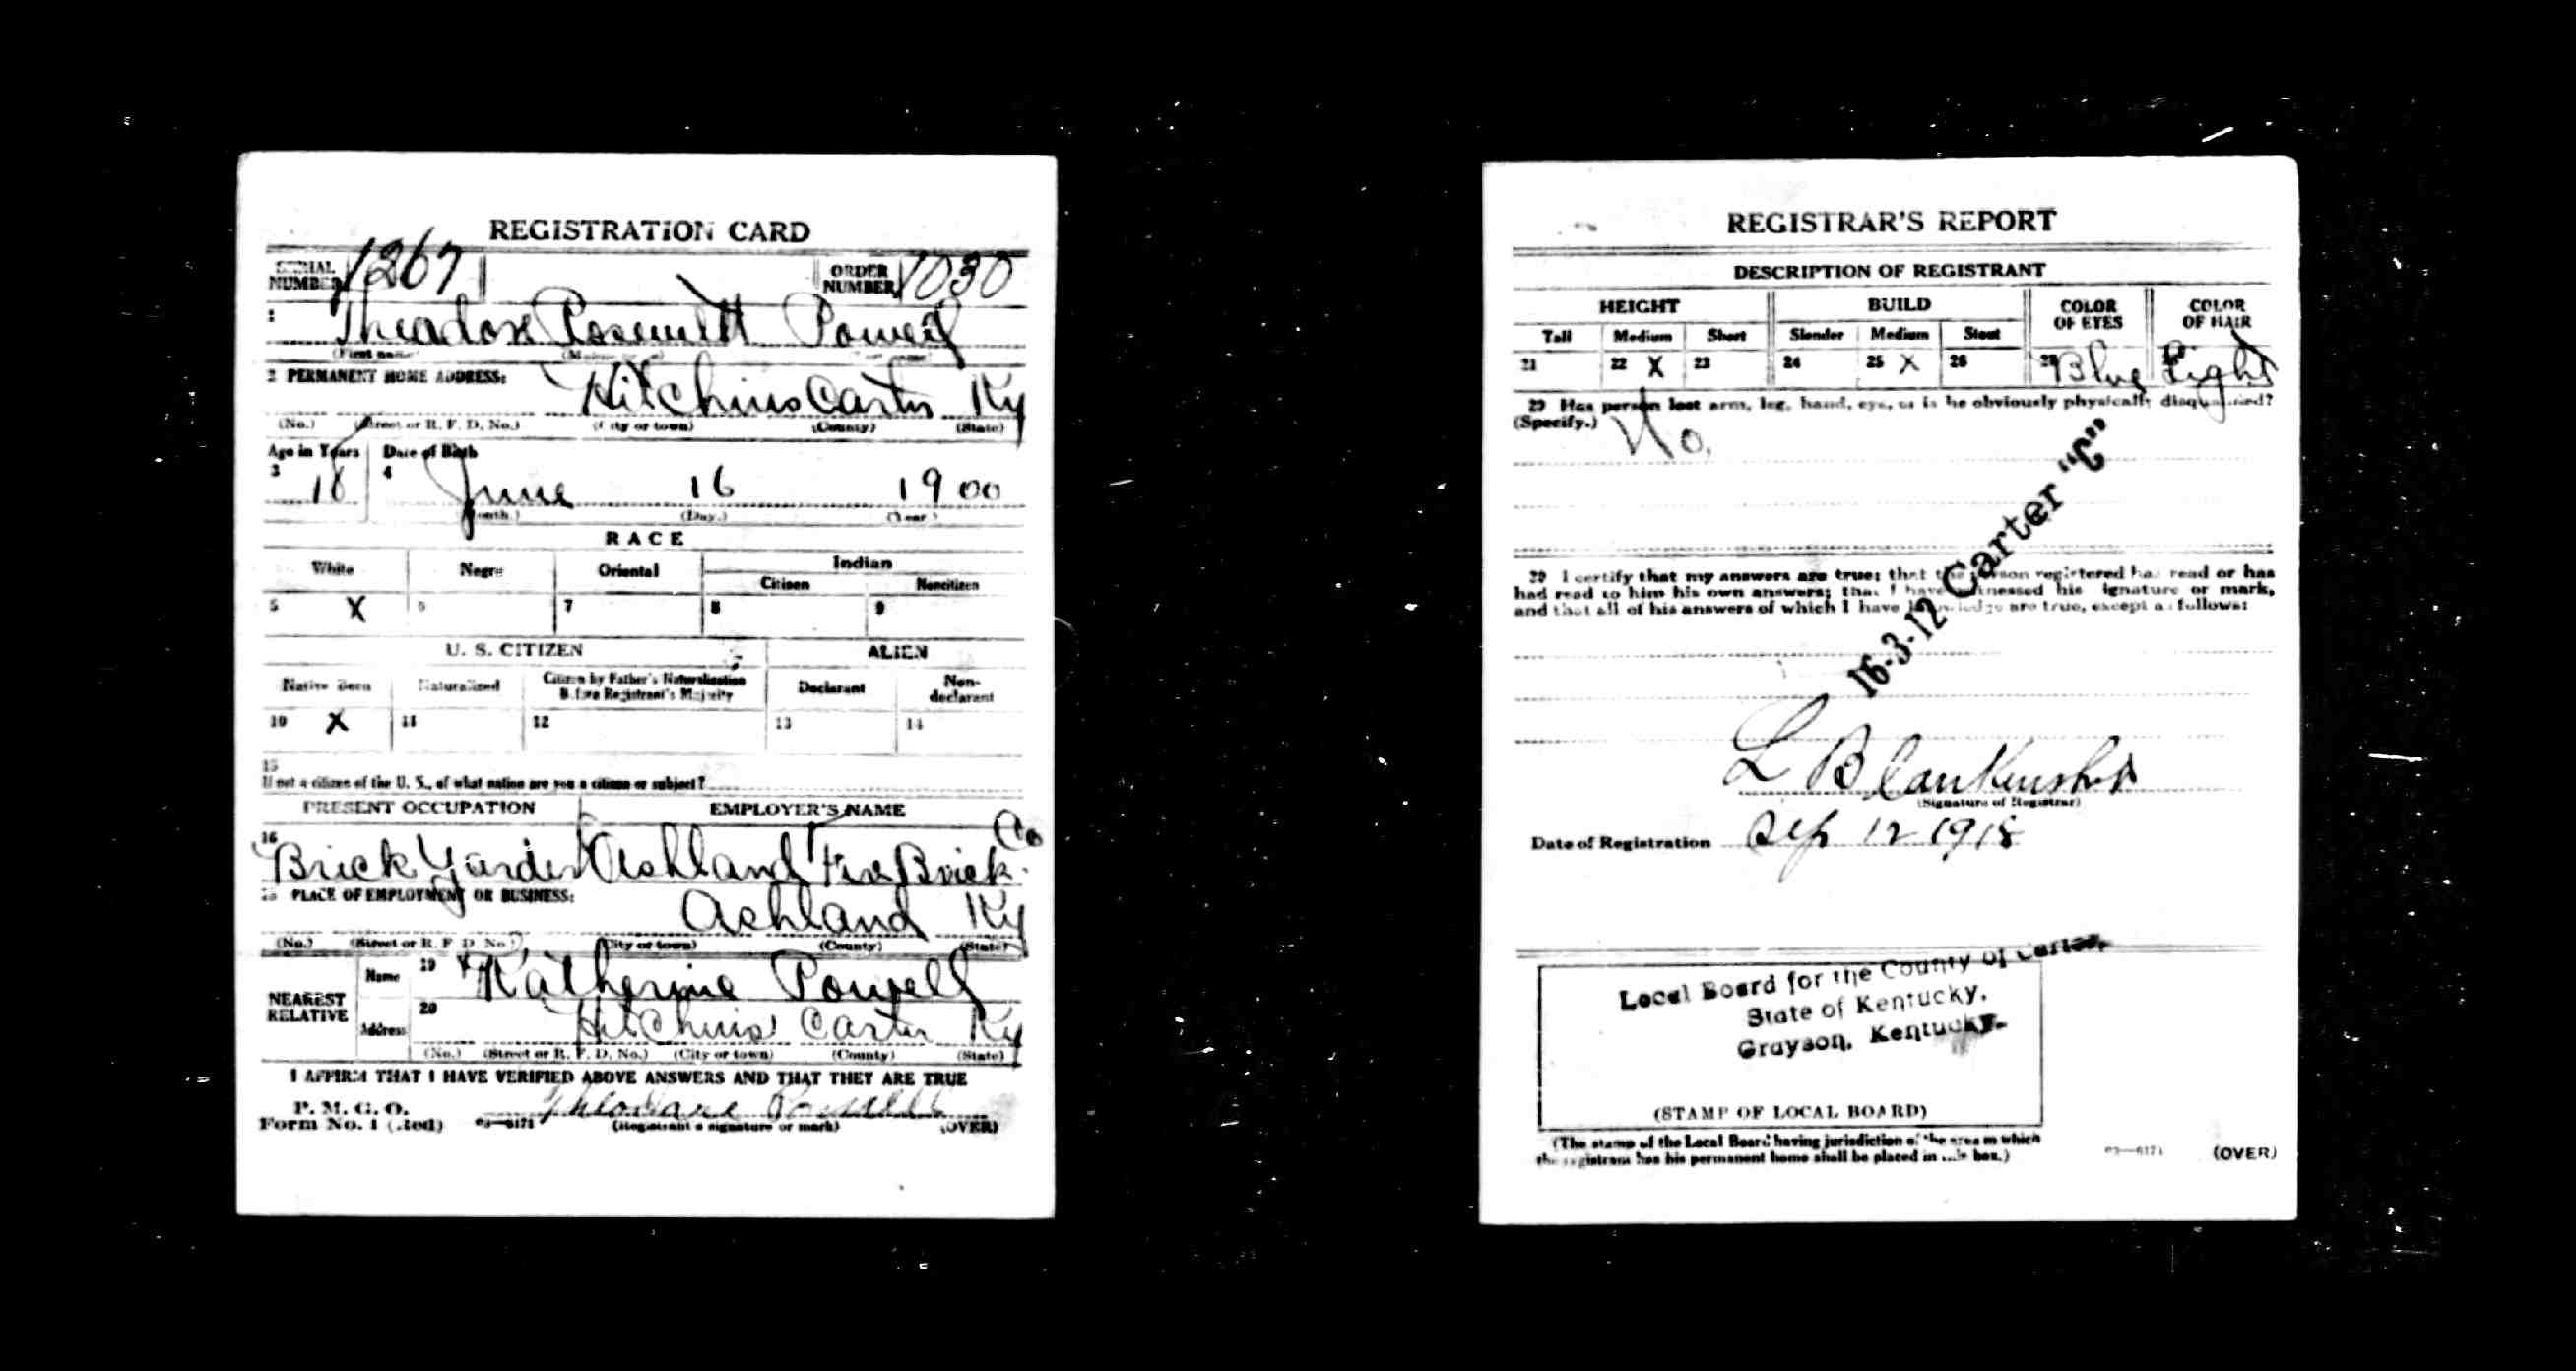 REGISTRATION CARD
SERIAL NUMBER 1267 ORDER NUMBER 1030
1 Theadore Rosevelt Powell
(First name) (Middle name) (Last name)
2 PERMANENT HOME ADDRESS:
Hitchins Carter Ky
(No.) (Street or R. F. D. No.) (City or town) (County) (State)
Age in Years Date of Birth
3 18 4 June 16 1900
(Month.) (Day.) (Year.)
RACE
White Negro Oriental Indian
Citizen Noncitizen
5 X 6 7 8 9
U. S. CITIZEN ALIEN
Native Born Naturalized Citizen by Father's Naturalization Before Registrant's Majority Declarant Non-declarant
10 X 11 12 13 14
15
If not a citizen of the U. S., of what nation are you a citizen or subject?
PRESENT OCCUPATION EMPLOYER'S NAME
16 Brick Yarder Ashland Fire Brick Co
PLACE OF EMPLOYMENT OR BUSINESS:
Ashland Ky
(No.) (Street or R. F. D. No.) (City or town) (County) (State)
NEAREST RELATIVE
Name 19 Katherine Powell
Address 20 Hitchins Carter Ky
(No.) (Street or R. F. D. No.) (City or town) (County) (State)
I AFFIRM THAT I HAVE VERIFIED ABOVE ANSWERS AND THAT THEY ARE TRUE
P. M. G. O.
Form No. 1 (Red) 03—6171 Theodore Powell
(Registrant's signature or mark) (OVER)
REGISTRAR'S REPORT
DESCRIPTION OF REGISTRANT
HEIGHT BUILD COLOR OF EYES COLOR OF HAIR
Tall Medium Short Slender Medium Stout
21 22 X 23 24 25 X 26 27 Blue Light
29 Has person lost arm, leg, hand, eye, or is he obviously physically disqualified?
(Specify.) No.
16-3-12 Carter "C"
30 I certify that my answers are true; that the person registered has read or has
had read to him his own answers; that I have witnessed his signature or mark,
and that all of his answers of which I have knowledge are true, except as follows:
L Blankenship
(Signature of Registrar)
Date of Registration Sep 12 1918
Local Board for the County of Carter,
State of Kentucky,
Grayson, Kentucky.
(STAMP OF LOCAL BOARD)
(The stamp of the Local Board having jurisdiction of the area in which
the registrant has his permanent home shall be placed in this box.)
03—6171 (OVER)